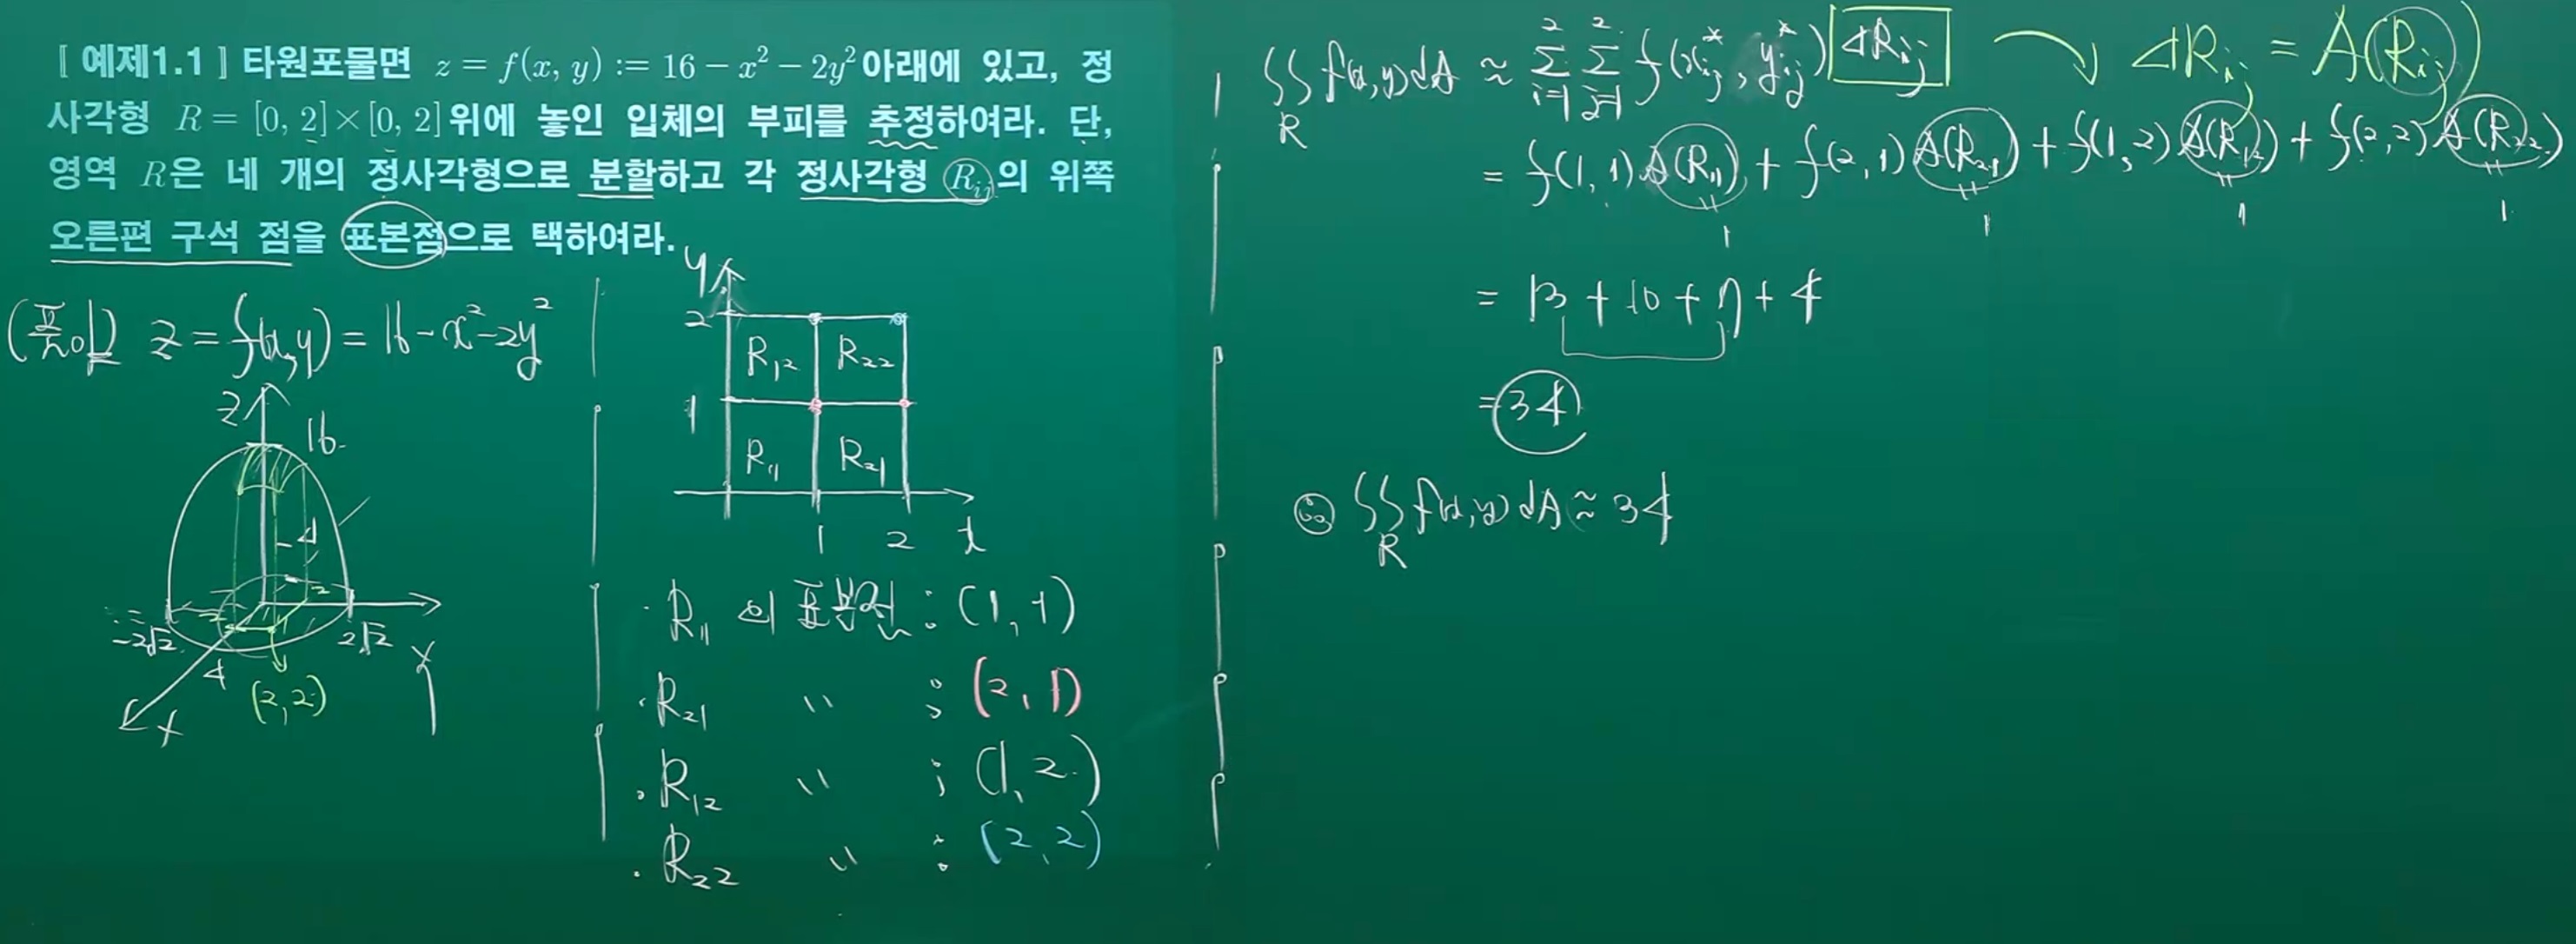 [ 예제1.1 ] 타원포물면 z = f(x, y) := 16 − x² − 2y² 아래에 있고, 정
사각형 R = [0, 2]×[0, 2] 위에 놓인 입체의 부피를 추정하여라. 단,
영역 R은 네 개의 정사각형으로 분할하고 각 정사각형 R_ij의 위쪽
오른편 구석 점을 표본점으로 택하여라.
(풀이) z = f(x,y) = 16 - x² - 2y²
z
16
4
2
2
-2√2
2√2
y
4
(2,2)
x
y
2
R₁₂ R₂₂
1
R₁₁ R₂₁
1 2 x
· R₁₁ 의 표본점 : (1, 1)
· R₂₁ " : (2, 1)
· R₁₂ " : (1, 2)
· R₂₂ " : (2, 2)
∬_R f(x,y) dA ≈ Σ_{i=1}^{2} Σ_{j=1}^{2} f(x_ij*, y_ij*) ΔR_ij → ΔR_ij = A(R_ij)
= f(1,1) A(R₁₁) + f(2,1) A(R₂₁) + f(1,2) A(R₁₂) + f(2,2) A(R₂₂)
" 1 " 1 " 1 " 1
= 13 + 10 + 7 + 4
= 34
∴ ∬_R f(x,y) dA ≈ 34